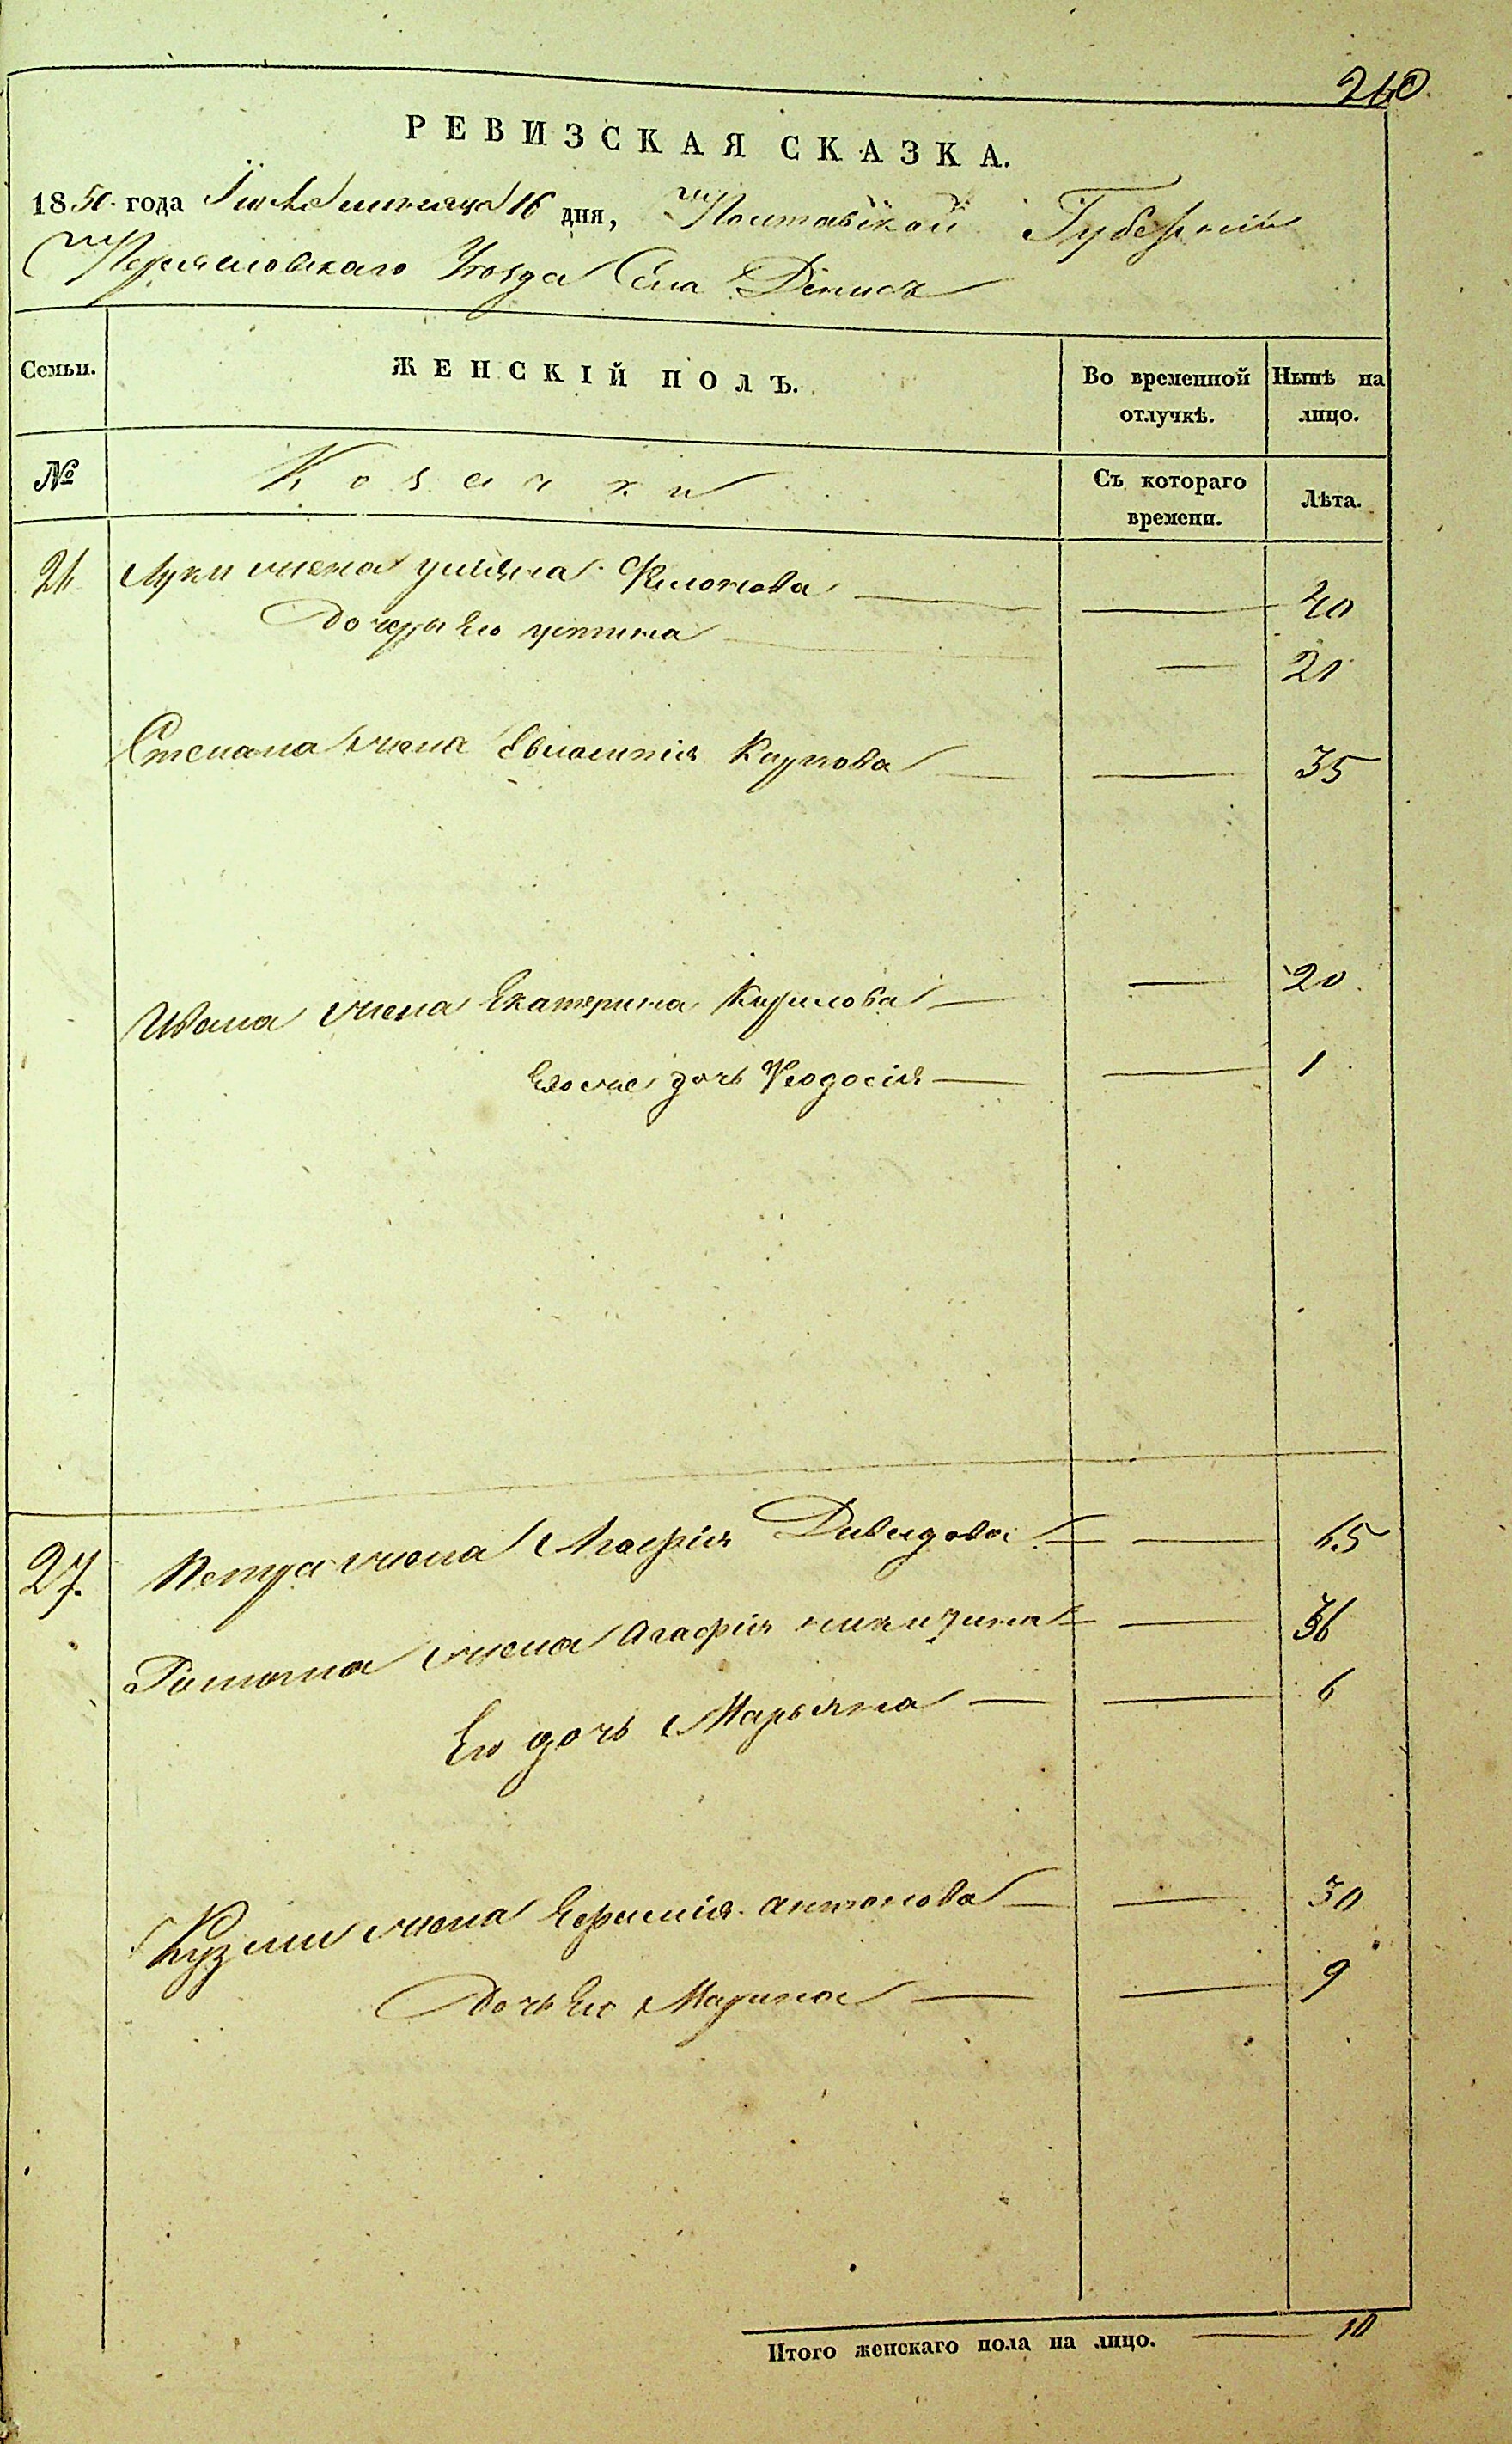 260
РЕВИЗСКАЯ СКАЗКА.
1850 года Іюля месяца 16 дня, Полтавской Губерніи
Переяславскаго Уезда Села Денисъ
Семьи. ЖЕНСКІЙ ПОЛЪ. Во временной отлучкѣ. Нынѣ на лицо.
№ Козачки Съ котораго времени. Лѣта.
26 Луки жена Улияна Филонова 40
Дочеръ Его Устина 20
Степана жена Евдокія Карпова 35
Ивана жена Екатерина Кирилова 20
Его же дочь Феодосія 1
27. Петра жена Агафія Давидова 65
жена Агафія 36
Его дочь Марьяна 6
Кузми жена Ефимія Антонова 30
Дочь Его Марина 9
Итого женскаго пола на лицо. 10